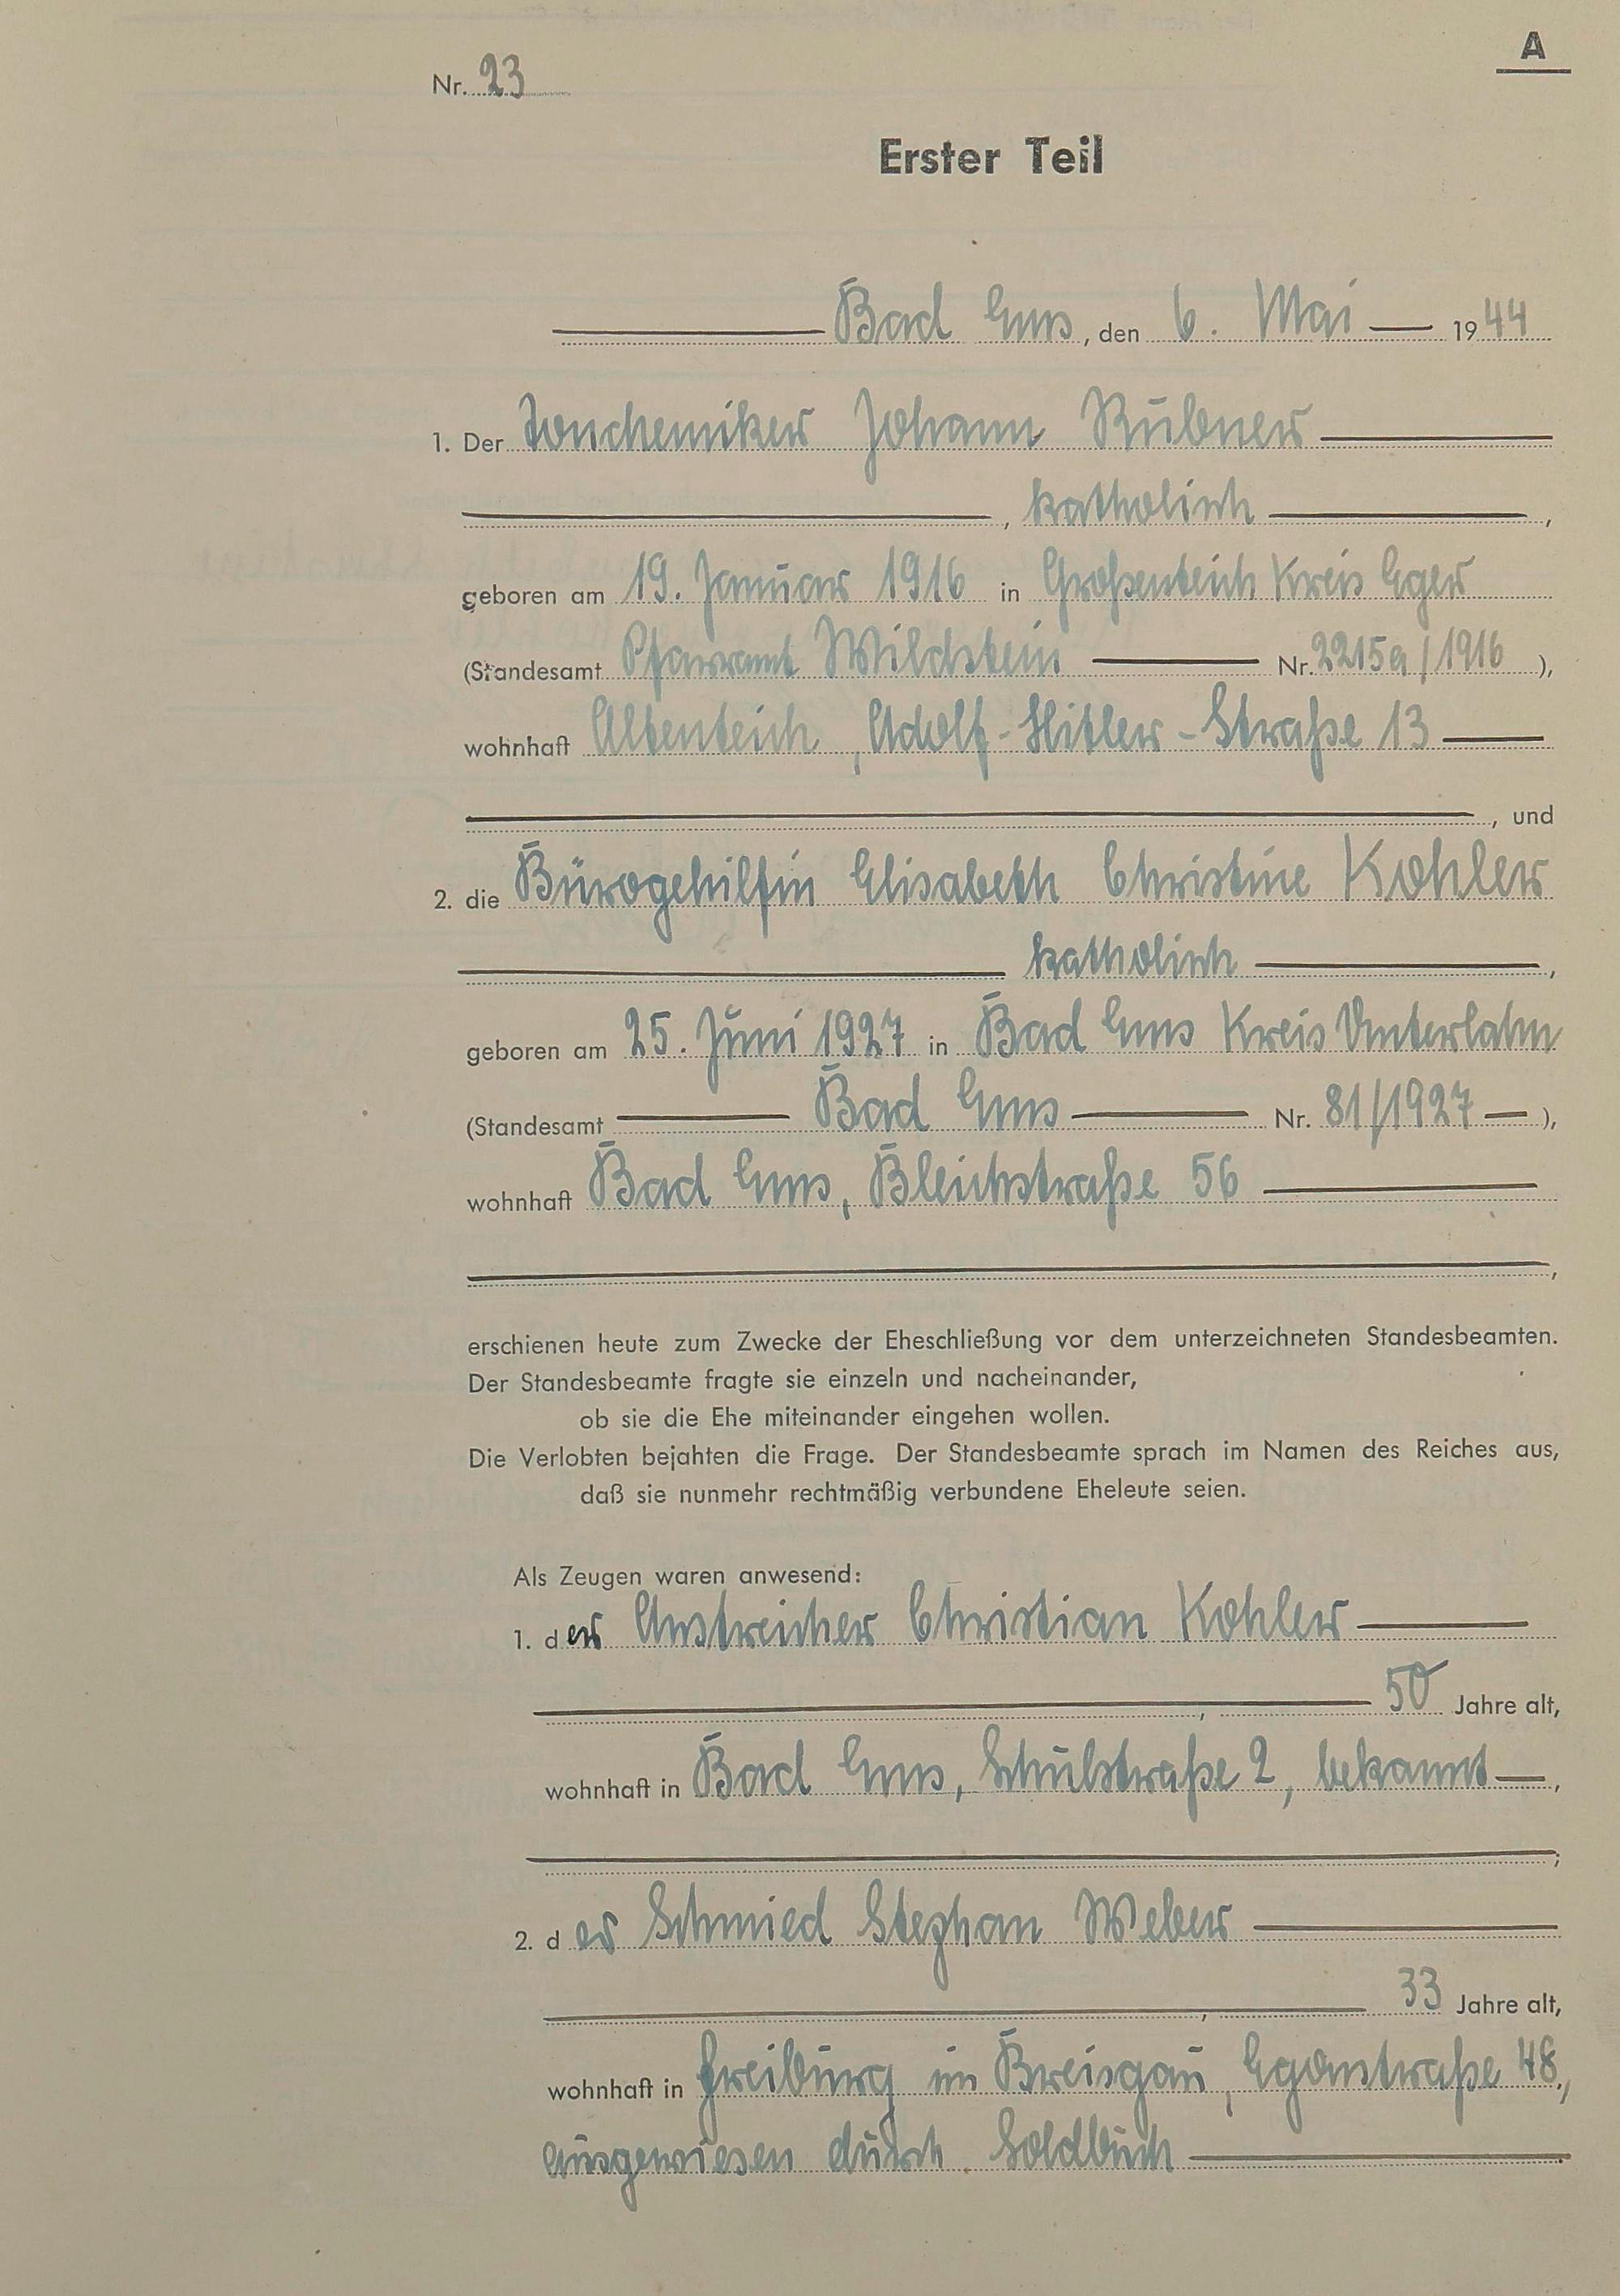 A
Nr. 23
Erster Teil
Bad Ems, den 6. Mai 1944
1. Der Tonchemiker Johann Rubner
, katholisch,
geboren am 19. Januar 1916 in Großenteich Kreis Eger
(Standesamt Pfarramt Wildstein Nr. 2215a/1916),
wohnhaft Altenteich, Adolf-Hitler-Straße 13
, und
2. die Bürogehilfin Elisabeth Christine Kohler
katholisch,
geboren am 25. Juni 1927 in Bad Ems Kreis Unterlahn
(Standesamt Bad Ems Nr. 81/1927),
wohnhaft Bad Ems, Bleichstraße 56
,
erschienen heute zum Zwecke der Eheschließung vor dem unterzeichneten Standesbeamten.
Der Standesbeamte fragte sie einzeln und nacheinander,
ob sie die Ehe miteinander eingehen wollen.
Die Verlobten bejahten die Frage. Der Standesbeamte sprach im Namen des Reiches aus,
daß sie nunmehr rechtmäßig verbundene Eheleute seien.
Als Zeugen waren anwesend:
1. der Anstreicher Christian Kohler
, 50 Jahre alt,
wohnhaft in Bad Ems, Schulstraße 2, bekannt,
;
2. der Schmied Stephan Weber
, 33 Jahre alt,
wohnhaft in Freiburg im Breisgau, Egonstraße 48,
ausgewiesen durch Soldbuch.